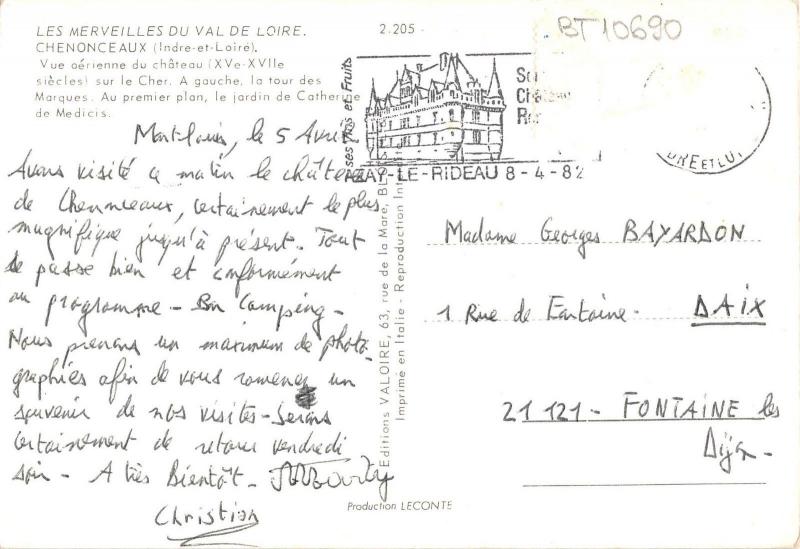 LES MERVEILLES DU VAL DE LOIRE.
CHENONCEAUX (Indre-et-Loire).
Vue aérienne du château (XVe-XVIIe
siècles) sur le Cher. A gauche, la tour des
Marques. Au premier plan, le jardin de Catherine
de Medicis.
2.205
BT10690
Montlouis, le 5 Avril
Avons visité ce matin le château
de Chenonceaux, certainement le plus
magnifique jusqu'à présent. Tout
se passe bien et conformément
au programme - Bon Camping -
Nous prenons un maximum de photo-
graphies afin de vous ramener un
souvenir de nos visites - Serons
certainement de retour vendredi
soir - A très Bientôt -
Christian
ses Vins et Fruits
AZAY-LE-RIDEAU 8-4-82
Editions VALOIRE, 63, rue de la Mare, BL
Imprimé en Italie - Reproduction Int
Production LECONTE
Madame Georges BAYARDON
1 Rue de Fontaine - DAIX
21 121 - FONTAINE les
Dijon -